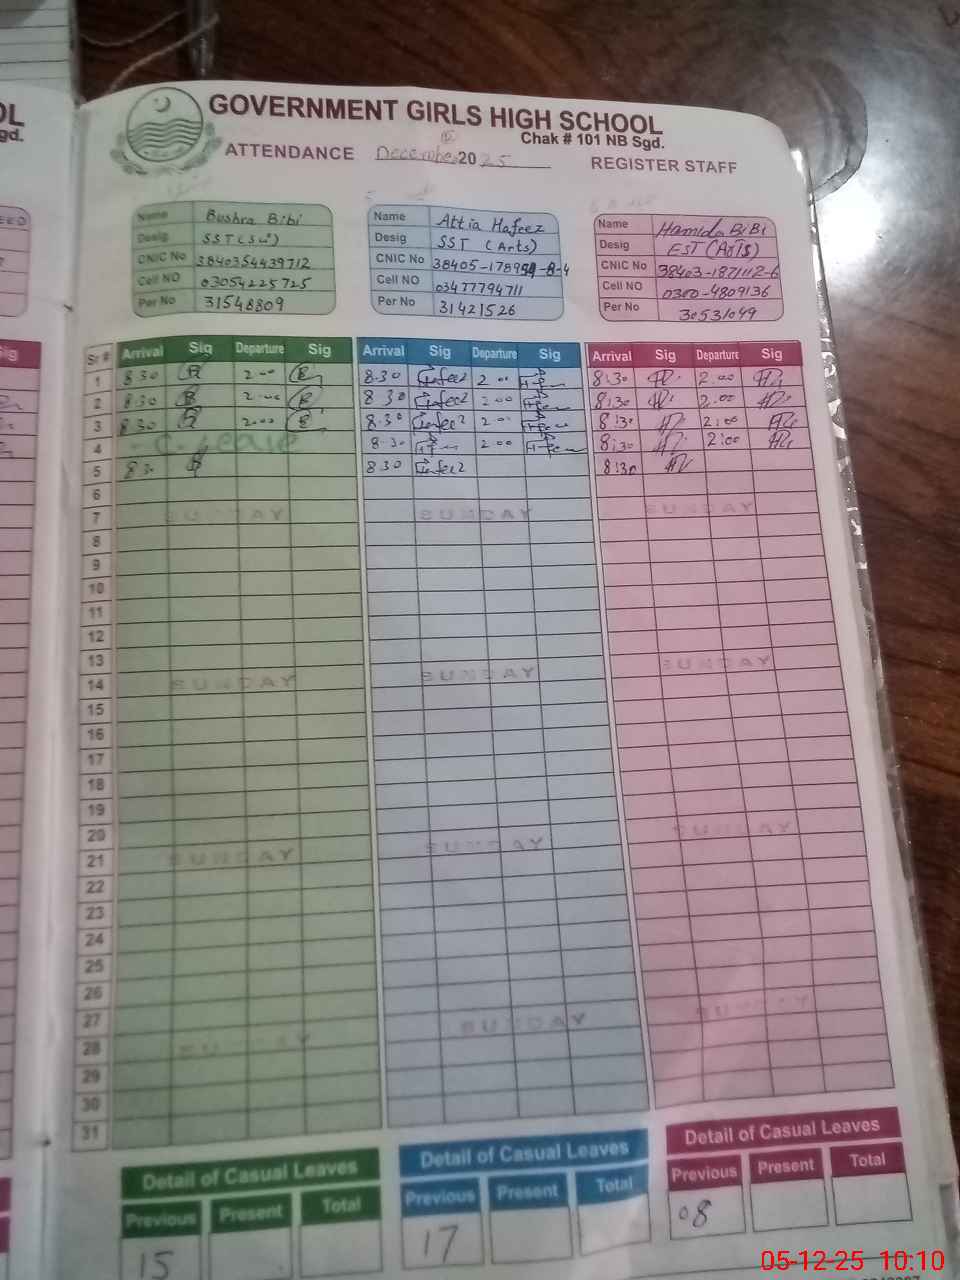 GOVERNMENT GIRLS HIGH SCHOOL
Chak # 101 NB Sgd.
ATTENDANCE December 2025 REGISTER STAFF
Name Bushra Bibi
Desig SST (Sci)
CNIC No 3840354439712
Cell NO 03054225725
Per No 31548809
Name Attia Hafeez
Desig SST (Arts)
CNIC No
Cell NO 03477794711
Per No 31421526
Name Hamida BiBi
Desig EST (Arts)
CNIC No 38403-1871112-6
Cell NO 0300-4809136
Per No 30531049
Sr # Arrival Sig Departure Sig Arrival Sig Departure Sig Arrival Sig Departure Sig
1 8 30 2.00 8.30 2.00 8:30 2.00
2 8.30 2.00 8 30 2.00 8:30 2.00
3 8.30 2.00 8.30 2.00 8:30 2:00
4 C. Leave 8.30 2.00 8:30 2:00
5 8 30 8 30 8:30
6
7 SUNDAY SUNDAY SUNDAY
8
9
10
11
12
13 SUNDAY
14 SUNDAY SUNDAY
15
16
17
18
19
20 SUNDAY
21 SUNDAY SUNDAY
22
23
24
25
26
27 SUNDAY SUNDAY
28 SUNDAY
29
30
31
Detail of Casual Leaves
Previous Present Total
15
Detail of Casual Leaves
Previous Present Total
17
Detail of Casual Leaves
Previous Present Total
08
05-12-25 10:10